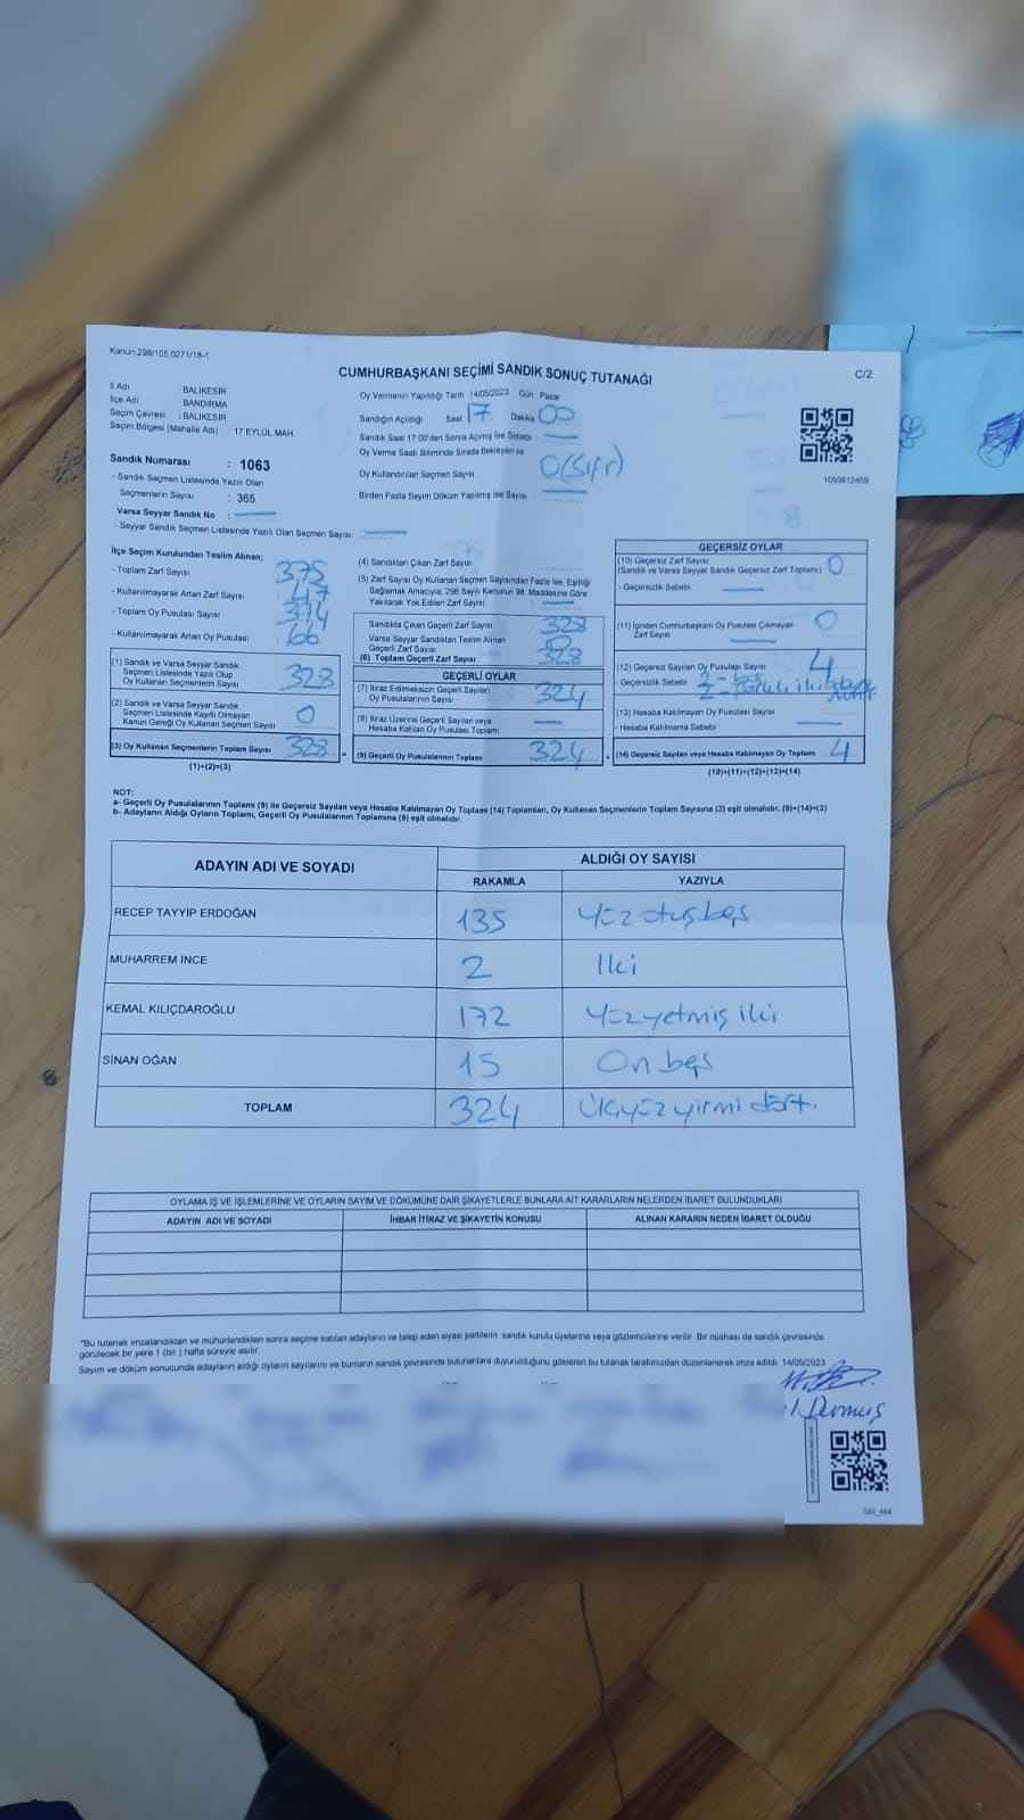 Kanun:298/105,0271/18-1
CUMHURBAŞKANI SEÇİMİ SANDIK SONUÇ TUTANAĞI
C/2
İl Adı BALIKESİR
İlçe Adı BANDIRMA
Seçim Çevresi : BALIKESİR
Seçim Bölgesi (Mahalle Adı) : 17 EYLÜL MAH.
Sandık Numarası : 1063
- Sandık Seçmen Listesinde Yazılı Olan
Seçmenlerin Sayısı : 365
Varsa Seyyar Sandık No :
- Seyyar Sandık Seçmen Listesinde Yazılı Olan Seçmen Sayısı :
Oy Vermenin Yapıldığı Tarih 14/05/2023 Gün Pazar
Sandığın Açıldığı Saat 17 Dakika 00
Sandık Saat 17:00'den Sonra Açılmış İse Sebebi :
Oy Verme Saati Bitiminde Sırada Bekleyen ve
Oy Kullandırılan Seçmen Sayısı 0(Sıfır)
Birden Fazla Sayım Döküm Yapılmış İse Sayısı
İlçe Seçim Kurulundan Teslim Alınan;
- Toplam Zarf Sayısı 375
- Kullanılmayarak Artan Zarf Sayısı 47
- Toplam Oy Pusulası Sayısı
- Kullanılmayarak Artan Oy Pusulası 66
(1) Sandık ve Varsa Seyyar Sandık
Seçmen Listesinde Yazılı Olup
Oy Kullanan Seçmenlerin Sayısı 328
(2) Sandık ve Varsa Seyyar Sandık
Seçmen Listesinde Kayıtlı Olmayan
Kanun Gereği Oy Kullanan Seçmen Sayısı 0
(3) Oy Kullanan Seçmenlerin Toplam Sayısı 328
(1)+(2)=(3)
(4) Sandıktan Çıkan Zarf Sayısı
(5) Zarf Sayısı Oy Kullanan Seçmen Sayısından Fazla İse, Eşitliği
Sağlamak Amacıyla, 298 Sayılı Kanunun 98. Maddesine Göre
Yakılarak Yok Edilen Zarf Sayısı
Sandıkta Çıkan Geçerli Zarf Sayısı 328
Varsa Seyyar Sandıktan Teslim Alınan
Geçerli Zarf Sayısı 0
(6) Toplam Geçerli Zarf Sayısı 328
GEÇERLİ OYLAR
(7) İtiraz Edilmeksizin Geçerli Sayılan
Oy Pusulalarının Sayısı 324
(8) İtiraz Üzerine Geçerli Sayılan veya
Hesaba Katılan Oy Pusulası Toplamı
(9) Geçerli Oy Pusulalarının Toplamı 324
GEÇERSİZ OYLAR
(10) Geçersiz Zarf Sayısı
(Sandık ve Varsa Seyyar Sandık Geçersiz Zarf Toplamı) 0
- Geçersizlik Sebebi
(11) İçinden Cumhurbaşkanı Oy Pusulası Çıkmayan
Zarf Sayısı 0
(12) Geçersiz Sayılan Oy Pusulası Sayısı 4
- Geçersizlik Sebebi 2- boş
(13) Hesaba Katılmayan Oy Pusulası Sayısı
- Hesaba Katılmama Sebebi
(14) Geçersiz Sayılan veya Hesaba Katılmayan Oy Toplamı 4
(10)+(11)+(12)+(13)=(14)
NOT:
a- Geçerli Oy Pusulalarının Toplamı (9) ile Geçersiz Sayılan veya Hesaba Katılmayan Oy Toplamı (14) Toplamları, Oy Kullanan Seçmenlerin Toplam Sayısına (3) eşit olmalıdır. (9)+(14)=(3)
b- Adayların Aldığı Oyların Toplamı, Geçerli Oy Pusulalarının Toplamına (9) eşit olmalıdır.
ADAYIN ADI VE SOYADI
ALDIĞI OY SAYISI
RAKAMLA YAZIYLA
RECEP TAYYİP ERDOĞAN 135 Yüzotuzbeş
MUHARREM İNCE 2 İki
KEMAL KILIÇDAROĞLU 172 Yüzyetmiş iki
SİNAN OĞAN 15 On beş
TOPLAM 324 Üçyüzyirmi dört.
OYLAMA İŞ VE İŞLEMLERİNE VE OYLARIN SAYIM VE DÖKÜMÜNE DAİR ŞİKAYETLERLE BUNLARA AİT KARARLARIN NELERDEN İBARET BULUNDUKLARI
ADAYIN ADI VE SOYADI İHBAR İTİRAZ VE ŞİKAYETİN KONUSU ALINAN KARARIN NEDEN İBARET OLDUĞU
"Bu tutanak imzalandıktan ve mühürlendikten sonra seçime katılan adayların ve talep eden siyasi partilerin sandık kurulu üyelerine veya gözlemcilerine verilir. Bir nüshası da sandık çevresinde
görülecek bir yere 1 (bir ) hafta süreyle asılır.
Sayım ve döküm sonucunda adayların aldığı oyların sayılarını ve bunların sandık çevresinde bulunanlara duyurulduğunu gösteren bu tutanak tarafımızdan düzenlenerek imza edildi. 14/05/2023
Durmuş